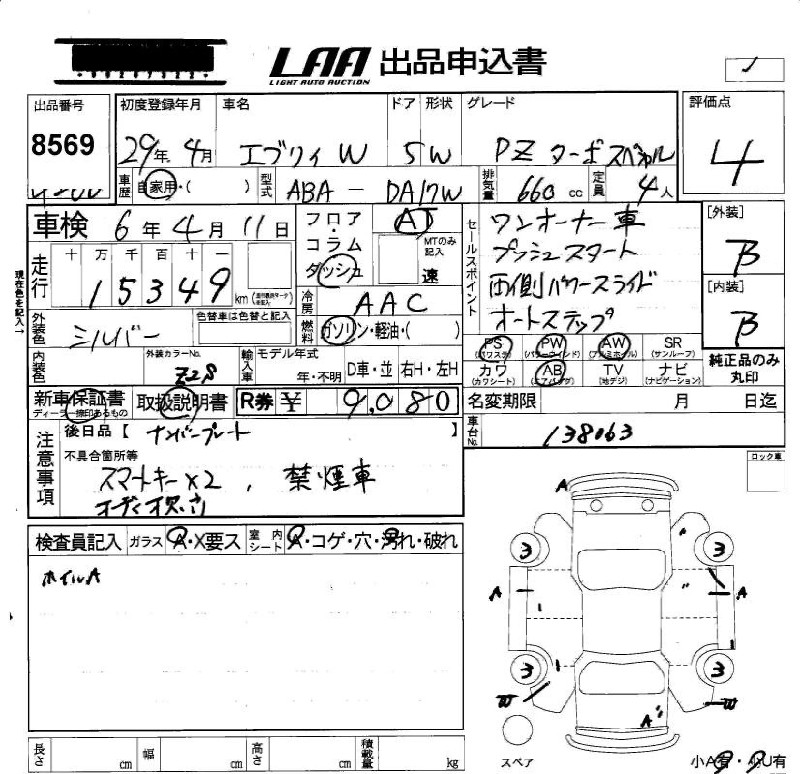 LAA 出品申込書
LIGHT AUTO AUCTION
出品番号 初度登録年月 車名 ドア 形状 グレード 評価点
8569 29年 4月 エブリィW 5 W PZ ターボスペシャル 4
車歴 自家用・( ) 型式 ABA - DA17W 排気量 660 cc 定員 4人
車検 6年 4月 11日 フロア・コラム ダッシュ AT MTのみ記入 速
セールスポイント ワンオーナー車
プッシュスタート
両側パワースライド
オートステップ
[外装] B
[内装] B
現在色を記入→
走行 十 万 千 百 十 一
15349 km
冷房 AAC
外装色 シルバー 色替車は色替と記入
燃料 ガソリン・軽油・( )
内装色 外装カラーNo. Z2S 輸入車 モデル年式 年・不明 D車・並 右H・左H
PS (パワステ) PW (パワーウインド) AW (アルミホイル) SR (サンルーフ)
カワ (カワシート) AB (エアバッグ) TV (地デジ) ナビ (ナビゲーション)
純正品のみ丸印
新車保証書 取扱説明書 R券 ¥ 9,080
ディーラー捺印あるもの
名変期限 月 日迄
注意事項 後日品【 ナンバープレート 】
車台No. 138063
不具合箇所等
スマートキー×2 , 禁煙車
ロック車
検査員記入 ガラス A・X要ス 室内シート A・コゲ・穴・汚れ・破れ
ホイルA
A
3 3
A A
3 3
W W
A
スペア
小A有・小U有
長さ cm 幅 cm 高さ cm 積載量 kg